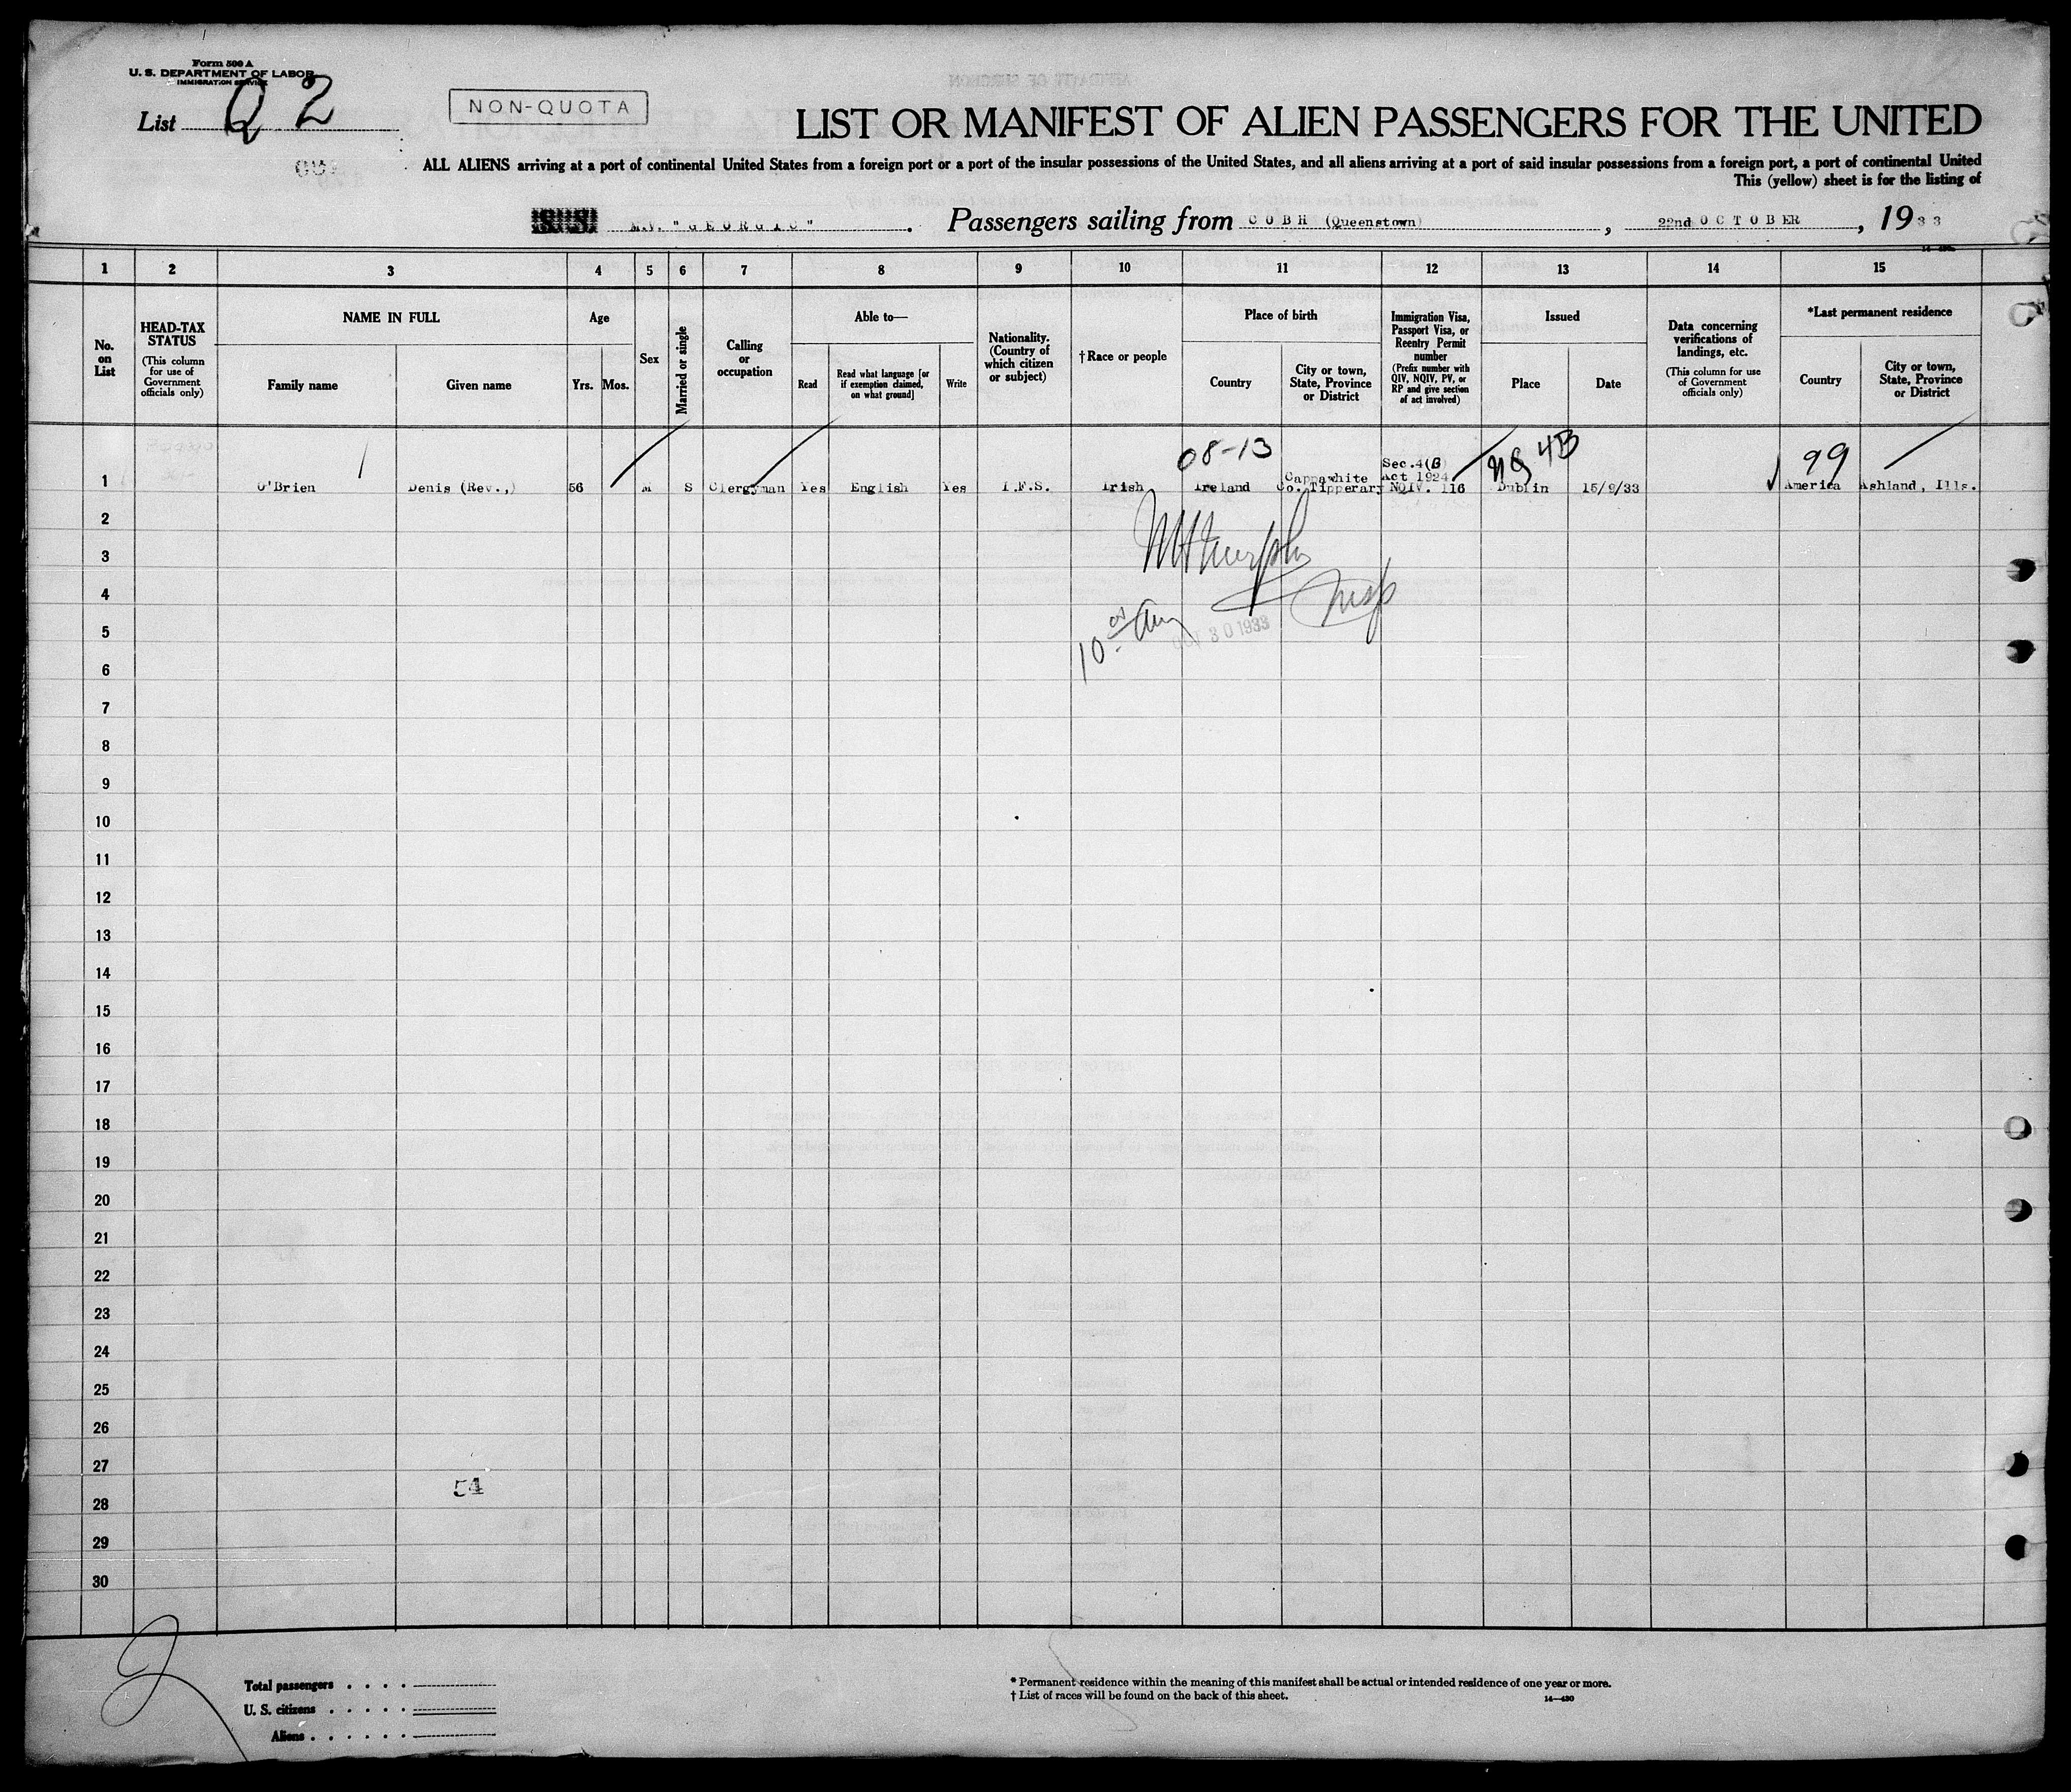 Form 500 A
U. S. DEPARTMENT OF LABOR
IMMIGRATION SERVICE
List Q 2
NON-QUOTA
LIST OR MANIFEST OF ALIEN PASSENGERS FOR THE UNITED
ALL ALIENS arriving at a port of continental United States from a foreign port or a port of the insular possessions of the United States, and all aliens arriving at a port of said insular possessions from a foreign port, a port of continental United
This (yellow) sheet is for the listing of
M.V. "GEORGIC". Passengers sailing from COBH (Queenstown), 22nd OCTOBER, 1933
1 2 3 4 5 6 7 8 9 10 11 12 13 14 15
No. on List
HEAD-TAX STATUS
(This column for use of Government officials only)
NAME IN FULL
Family name
Given name
Age
Yrs.
Mos.
Sex
Married or single
Calling or occupation
Able to—
Read
Read what language [or if exemption claimed, on what ground]
Write
Nationality. (Country of which citizen or subject)
†Race or people
Place of birth
Country
City or town, State, Province or District
Immigration Visa, Passport Visa, or Reentry Permit number
(Prefix number with QIV, NQIV, PV, or RP and give section of act involved)
Issued
Place
Date
Data concerning verifications of landings, etc.
(This column for use of Government officials only)
*Last permanent residence
Country
City or town, State, Province or District
08-13
4B
99
1 O'Brien Denis (Rev.,) 56 M S Clergyman Yes English Yes I.F.S. Irish Ireland Cappawhite Co. Tipperary Sec.4(B) Act 1924 NQIV. 116 Dublin 15/9/33 America Ashland, Ills.
2
3
4
5
OCT 30 1933
6
7
8
9
10
11
12
13
14
15
16
17
18
19
20
21
22
23
24
25
26
27
54
28
29
30
Total passengers
U. S. citizens
Aliens
* Permanent residence within the meaning of this manifest shall be actual or intended residence of one year or more.
† List of races will be found on the back of this sheet.
14—430